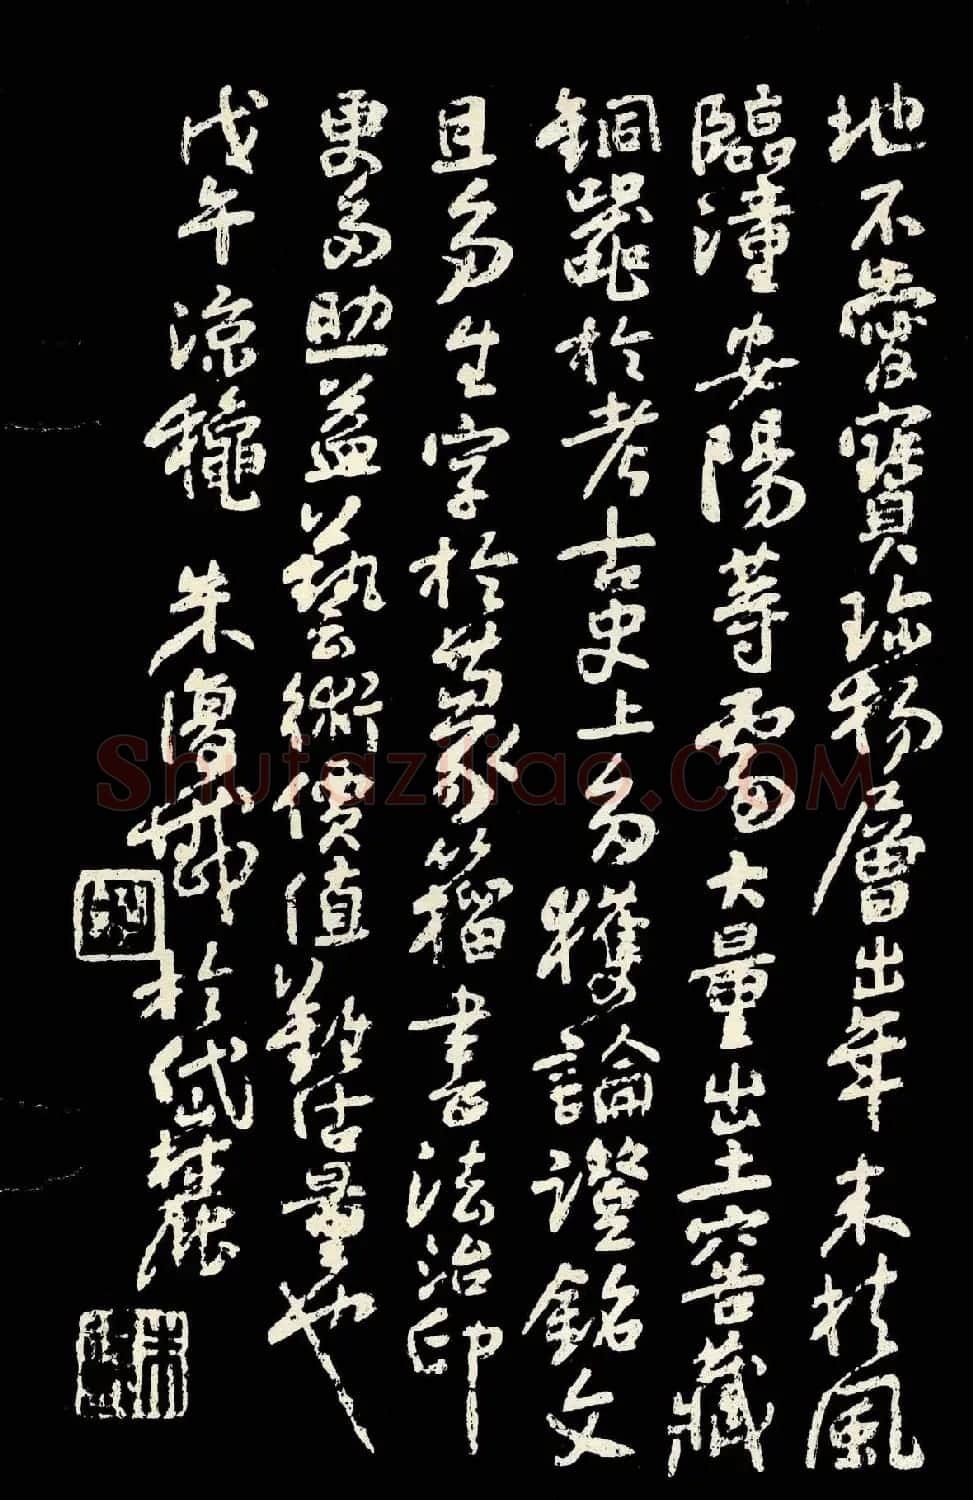 地不愛寶珍物層出年來扶風
臨潼安陽等處大量出土窖藏
銅器於考古史上多獲論證銘文
且多生字於篆籀書法治印
更多助益藝術價值難估量也
戊午涼龝 朱復戡於岱麓
朱
Shufaziliao.COM